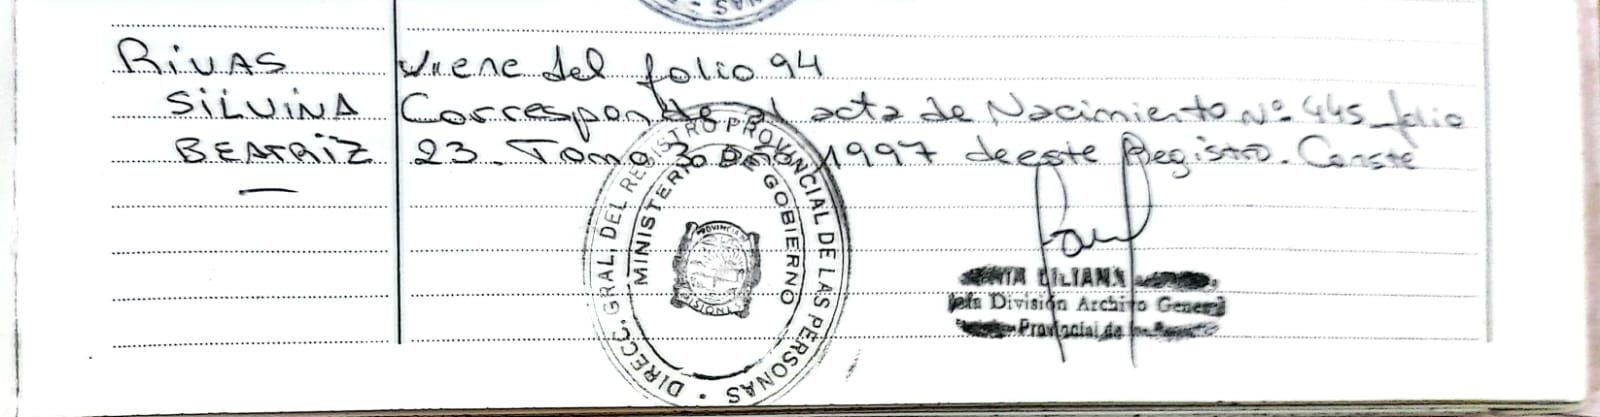 RIVAS
SILVINA
BEATRIZ
Viene del folio 94
Corresponde al acta de Nacimiento Nº 445 folio
23. Tomo 3o Año 1997 de este Registro. Conste
DIRECC. GRAL. DEL REGISTRO PROVINCIAL DE LAS PERSONAS
MINISTERIO DE GOBIERNO
PROVINCIA
MISIONES
LILIANA
Jefa División Archivo General
Provincial de las